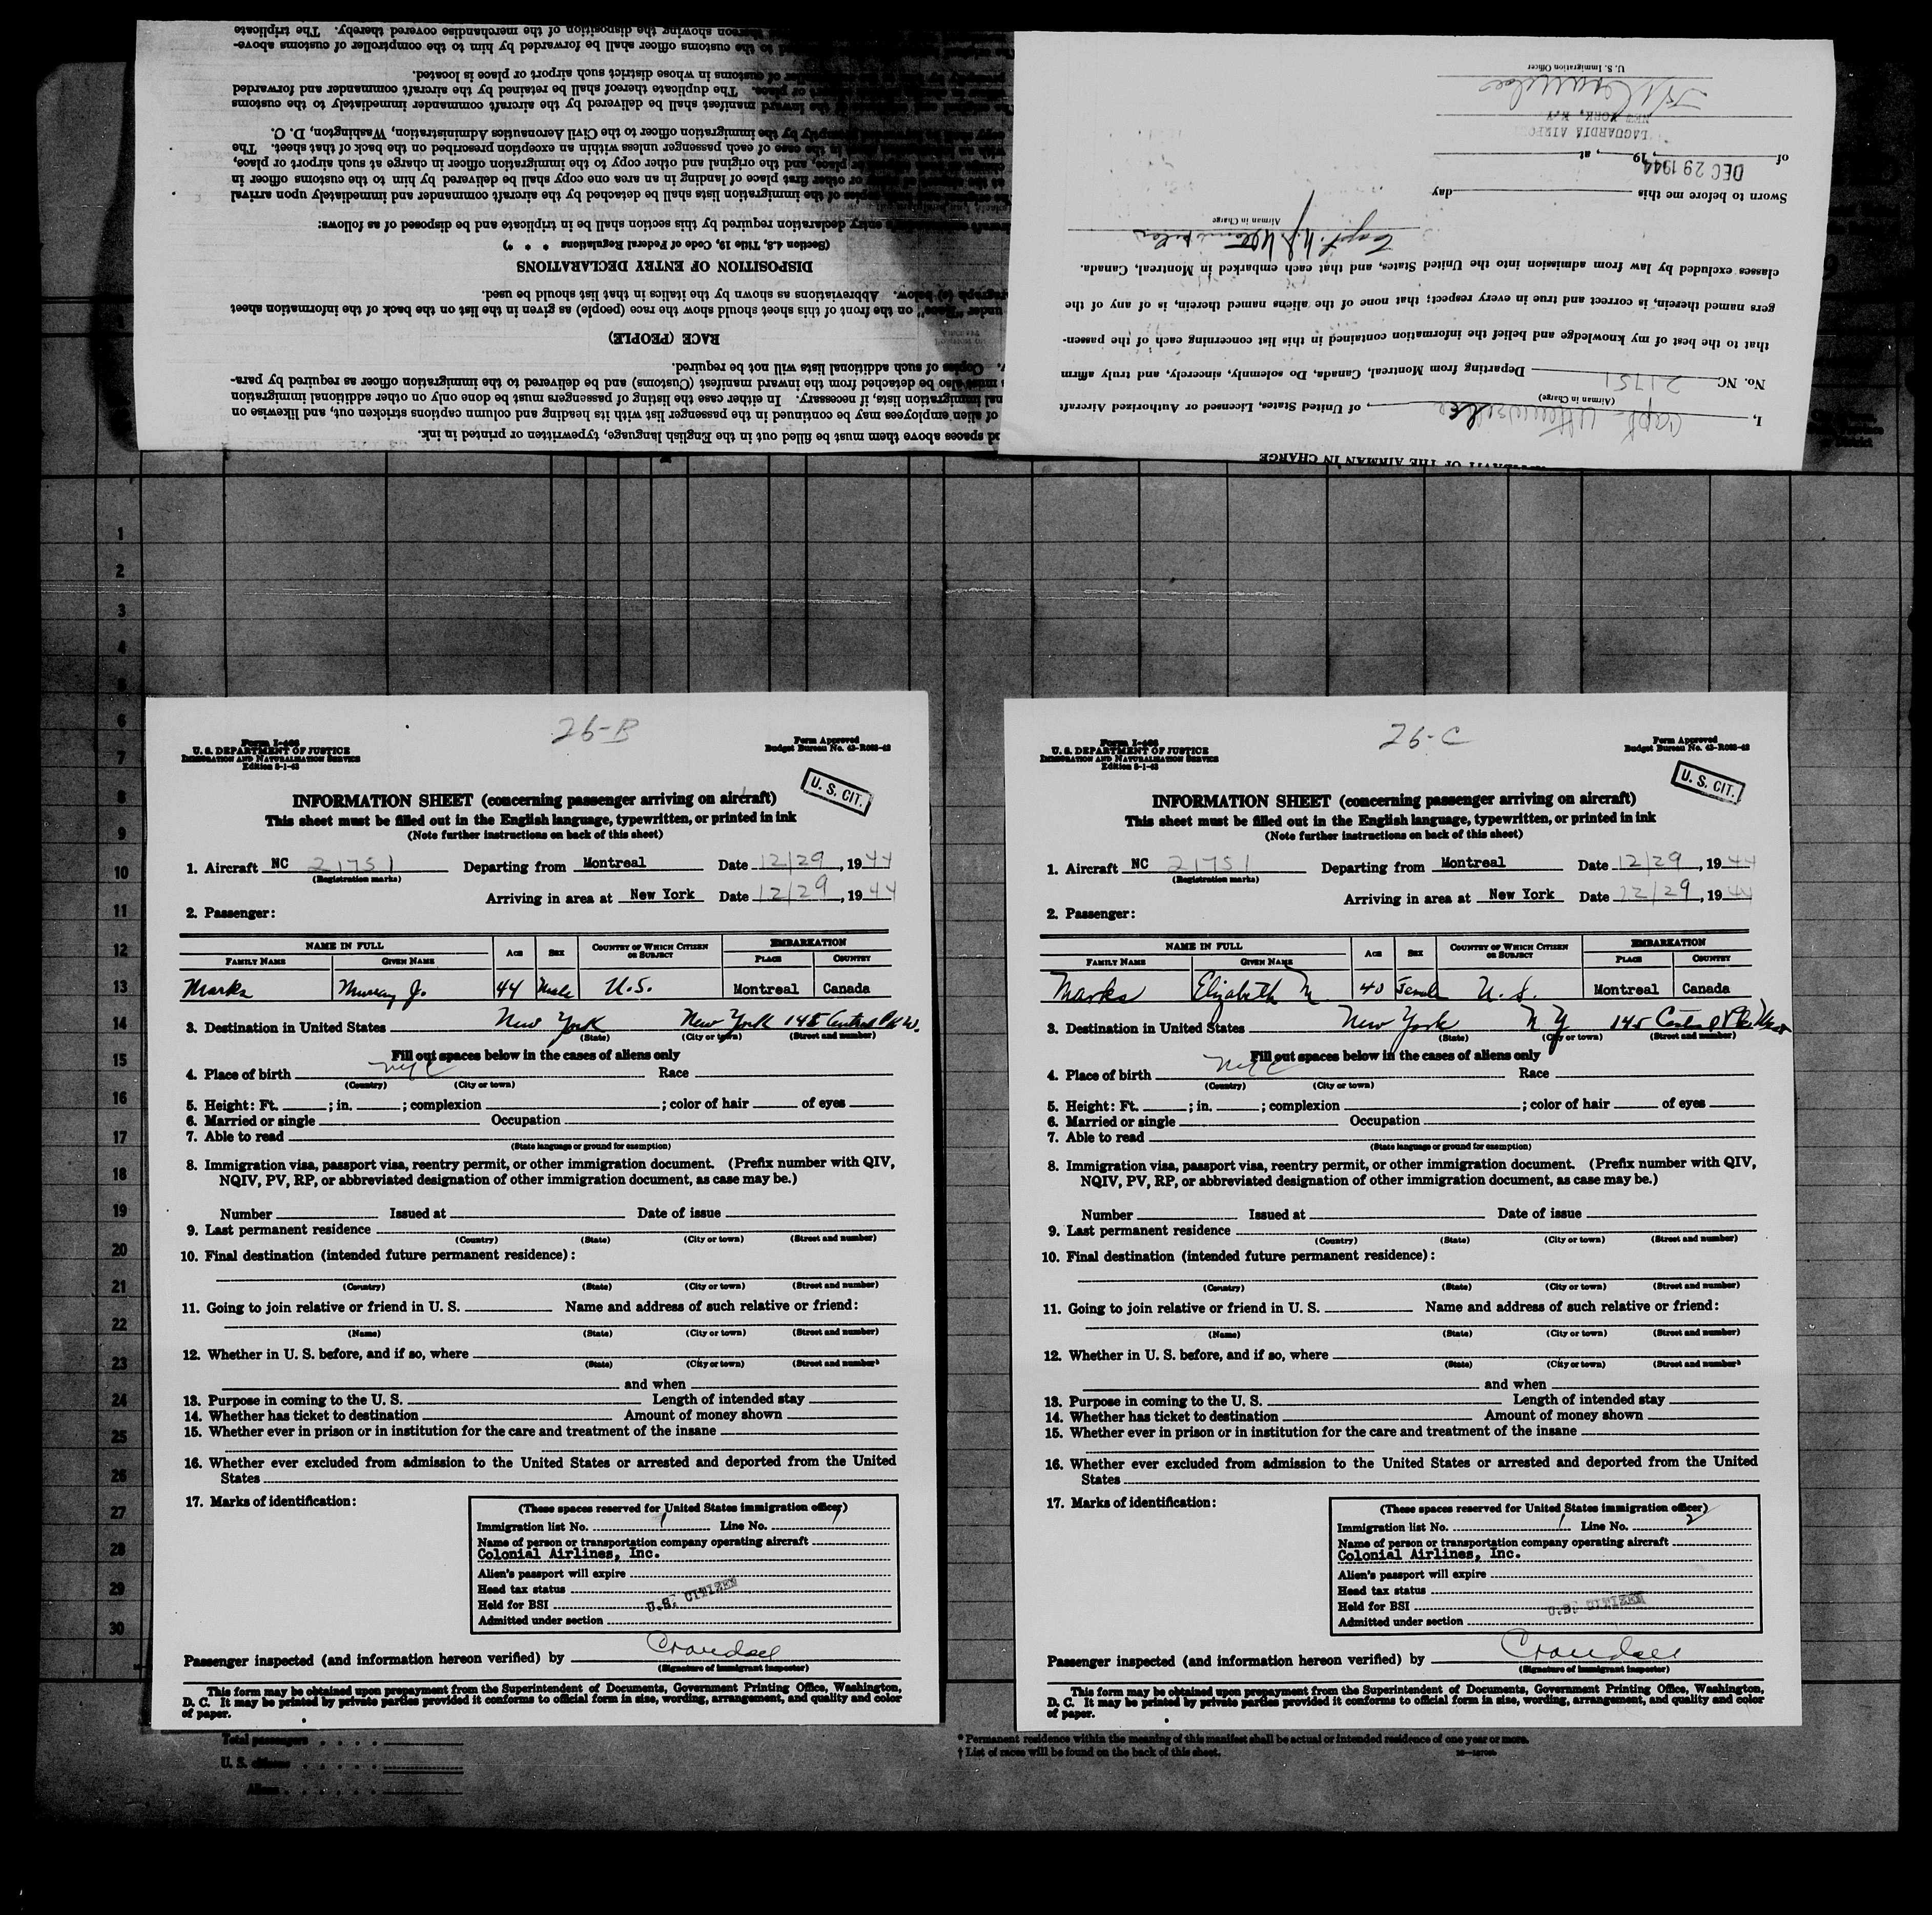 thereon showing the disposition of the merchandise covered thereby. The triplicate
to the customs officer shall be forwarded by him to the comptroller of customs above-
of customs in whose district such airport or place is located.
or place. The duplicate thereof shall be retained by the aircraft commander and forwarded
the inward manifest shall be delivered by the aircraft commander immediately to the customs
by the immigration officer to the Civil Aeronautics Administration, Washington, D. C.
in the case of each passenger unless within an exception prescribed on the back of that sheet. The
place, and the original and other copy to the immigration officer in charge at such airport or place,
or other first place of landing in an area one copy shall be delivered by him to the customs officer in
copies of the immigration lists shall be detached by the aircraft commander and immediately upon arrival
entry declaration required by this section shall be in triplicate and be disposed of as follows:
(Section 4.8, Title 19, Code of Federal Regulations * * *)
DISPOSITION OF ENTRY DECLARATIONS
below. Abbreviations as shown by the italics in that list should be used.
under "Race" on the front of this sheet should show the race (people) as given in the list on the back of the information sheet
RACE (PEOPLE)
Copies of such additional lists will not be required.
must also be detached from the inward manifest (Customs) and be delivered to the immigration officer as required by para-
immigration lists, if necessary. In either case the listing of passengers must be done only on other additional immigration
of alien employees may be continued in the passenger list with its heading and column captions stricken out, and likewise on
spaces above them must be filled out in the English language, typewritten or printed in ink.
OF THE AIRMAN IN CHARGE
I, Capt. , of United States, Licensed or Authorized Aircraft
(Airman in Charge)
No. NC 21751 Departing from Montreal, Canada, Do solemnly, sincerely, and truly affirm
that to the best of my knowledge and belief the information contained in this list concerning each of the passen-
gers named therein, is correct and true in every respect; that none of the aliens named therein, is of any of the
classes excluded by law from admission into the United States, and that each embarked in Montreal, Canada.
Capt.
Airman in Charge
Sworn to before me this day
of DEC 29 1944, 19 , at
LAGUARDIA
NEW YORK, N.Y
U. S. Immigration Officer
1
2
3
4
5
6
7
8
9
10
11
12
13
14
15
16
17
18
19
20
21
22
23
24
25
26
27
28
29
30
26-B
Form I-466
U. S. DEPARTMENT OF JUSTICE
IMMIGRATION AND NATURALIZATION SERVICE
Edition 5-1-43
Form Approved
Budget Bureau No. 43-R063-42
U. S. CIT.
INFORMATION SHEET (concerning passenger arriving on aircraft)
This sheet must be filled out in the English language, typewritten, or printed in ink
(Note further instructions on back of this sheet)
1. Aircraft NC 21751 Departing from Montreal Date 12/29, 1944
(Registration marks)
Arriving in area at New York Date 12/29, 1944
2. Passenger:
NAME IN FULL AGE SEX COUNTRY OF WHICH CITIZEN OR SUBJECT EMBARKATION
FAMILY NAME GIVEN NAME PLACE COUNTRY
Marks Murray J. 44 Male U.S. Montreal Canada
3. Destination in United States New York New York 145 Central Pk W.
(State) (City or town) (Street and number)
Fill out spaces below in the cases of aliens only
4. Place of birth NYC Race
(Country) (City or town)
5. Height: Ft. ; in. ; complexion ; color of hair of eyes
6. Married or single Occupation
7. Able to read
(State language or ground for exemption)
8. Immigration visa, passport visa, reentry permit, or other immigration document. (Prefix number with QIV,
NQIV, PV, RP, or abbreviated designation of other immigration document, as case may be.)
Number Issued at Date of issue
9. Last permanent residence
(Country) (State) (City or town) (Street and number)
10. Final destination (intended future permanent residence):
(Country) (State) (City or town) (Street and number)
11. Going to join relative or friend in U. S. Name and address of such relative or friend:
(Name) (State) (City or town) (Street and number)
12. Whether in U. S. before, and if so, where
(State) (City or town) (Street and number)
and when
13. Purpose in coming to the U. S. Length of intended stay
14. Whether has ticket to destination Amount of money shown
15. Whether ever in prison or in institution for the care and treatment of the insane
16. Whether ever excluded from admission to the United States or arrested and deported from the United
States
17. Marks of identification:
(These spaces reserved for United States immigration officer)
Immigration list No. 1 Line No. 1
Name of person or transportation company operating aircraft
Colonial Airlines, Inc.
Alien's passport will expire
Head tax status
Held for BSI U.S. CITIZEN
Admitted under section
Passenger inspected (and information hereon verified) by Crandall
(Signature of immigrant inspector)
This form may be obtained upon prepayment from the Superintendent of Documents, Government Printing Office, Washington,
D. C. It may be printed by private parties provided it conforms to official form in size, wording, arrangement, and quality and color
of paper.
26-C
Form I-466
U. S. DEPARTMENT OF JUSTICE
IMMIGRATION AND NATURALIZATION SERVICE
Edition 5-1-43
Form Approved
Budget Bureau No. 43-R063-42
U. S. CIT.
INFORMATION SHEET (concerning passenger arriving on aircraft)
This sheet must be filled out in the English language, typewritten, or printed in ink
(Note further instructions on back of this sheet)
1. Aircraft NC 21751 Departing from Montreal Date 12/29, 1944
(Registration marks)
Arriving in area at New York Date 12/29, 1944
2. Passenger:
NAME IN FULL AGE SEX COUNTRY OF WHICH CITIZEN OR SUBJECT EMBARKATION
FAMILY NAME GIVEN NAME PLACE COUNTRY
Marks Elizabeth M 40 Female U.S. Montreal Canada
3. Destination in United States New York N Y 145 Central Pk West
(State) (City or town) (Street and number)
Fill out spaces below in the cases of aliens only
4. Place of birth NYC Race
(Country) (City or town)
5. Height: Ft. ; in. ; complexion ; color of hair of eyes
6. Married or single Occupation
7. Able to read
(State language or ground for exemption)
8. Immigration visa, passport visa, reentry permit, or other immigration document. (Prefix number with QIV,
NQIV, PV, RP, or abbreviated designation of other immigration document, as case may be.)
Number Issued at Date of issue
9. Last permanent residence
(Country) (State) (City or town) (Street and number)
10. Final destination (intended future permanent residence):
(Country) (State) (City or town) (Street and number)
11. Going to join relative or friend in U. S. Name and address of such relative or friend:
(Name) (State) (City or town) (Street and number)
12. Whether in U. S. before, and if so, where
(State) (City or town) (Street and number)
and when
13. Purpose in coming to the U. S. Length of intended stay
14. Whether has ticket to destination Amount of money shown
15. Whether ever in prison or in institution for the care and treatment of the insane
16. Whether ever excluded from admission to the United States or arrested and deported from the United
States
17. Marks of identification:
(These spaces reserved for United States immigration officer)
Immigration list No. 1 Line No. 2
Name of person or transportation company operating aircraft
Colonial Airlines, Inc.
Alien's passport will expire
Head tax status
Held for BSI U.S. CITIZEN
Admitted under section
Passenger inspected (and information hereon verified) by Crandall
(Signature of immigrant inspector)
This form may be obtained upon prepayment from the Superintendent of Documents, Government Printing Office, Washington,
D. C. It may be printed by private parties provided it conforms to official form in size, wording, arrangement, and quality and color
of paper.
Total passengers
U. S. citizens
Aliens
* Permanent residence within the meaning of this manifest shall be actual or intended residence of one year or more.
† List of races will be found on the back of this sheet.